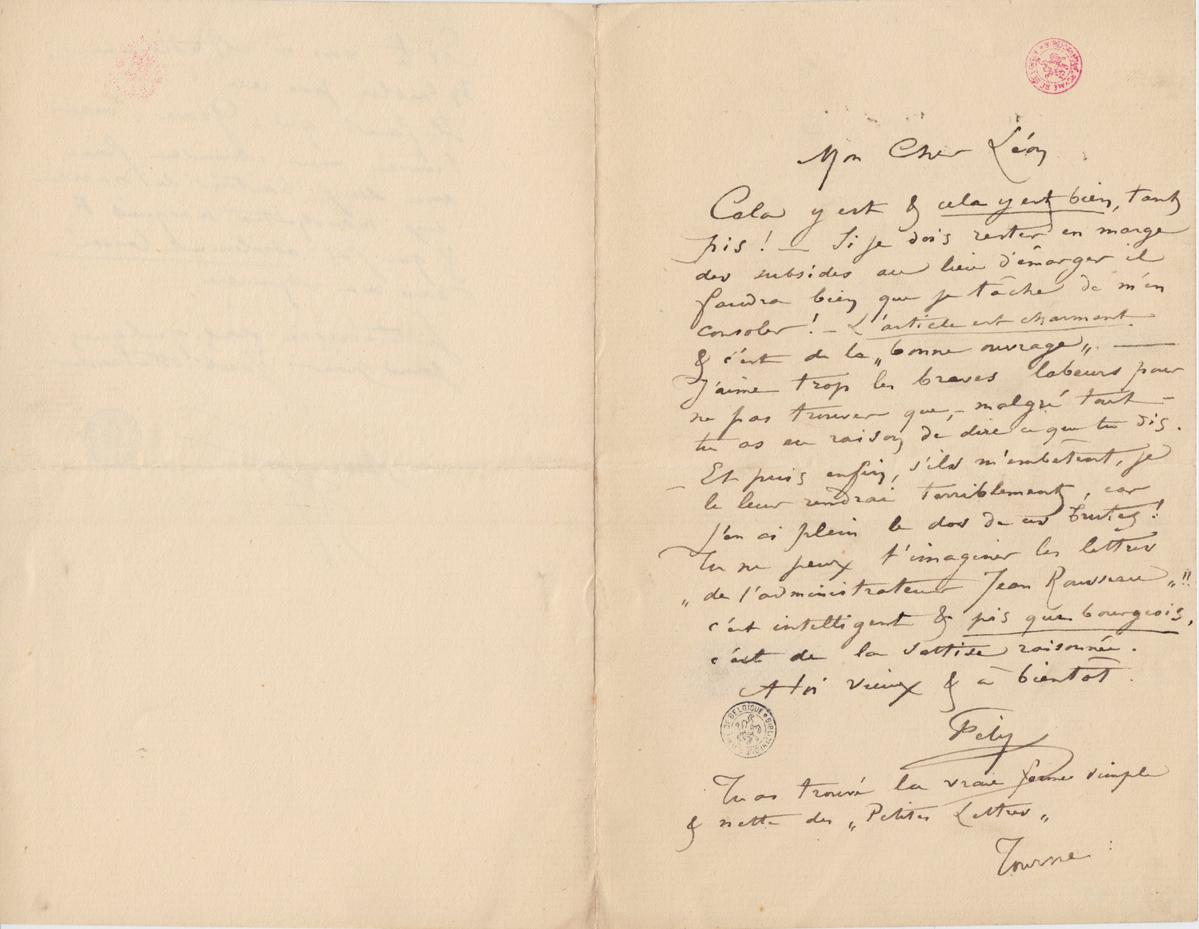 Mon Cher Léon
Cela y est & cela y est bien, tant
pis ! — Si je dois rester en marge
des subsides au lieu d'émarger il
faudra bien que je tâche de m'en
consoler ! — L'article est charmant
& c'est de la „bonne ouvrage„. —
J'aime trop les braves labeurs pour
ne pas trouver que, — malgré tout —
tu as eu raison de dire ce que tu dis.
— Et puis enfin, s'ils m'embêtent, je
le leur rendrai terriblement, car
j'en ai plein le dos de ces brutes !
Tu ne peux t'imaginer les lettres
„de l'administrateur Jean Rousseau„!!
c'est intelligent & pis que bourgeois,
c'est de la sottise raisonnée.
A toi vieux & à bientôt.
BIBLIOTHÈQUE ROYALE DE BELGIQUE
Fély
Tu as trouvé la vraie forme simple
& nette des „Petites Lettres„
Tourne :